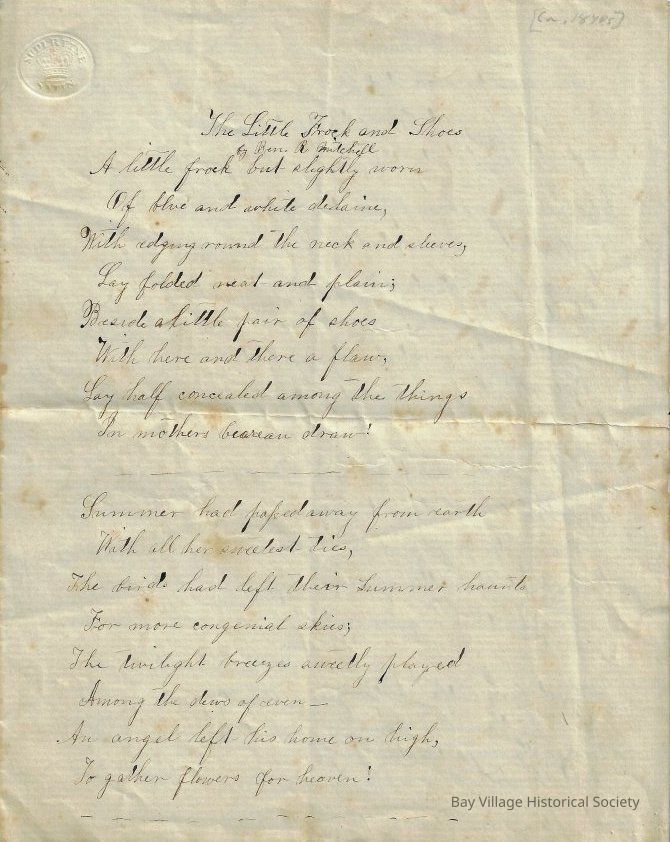 [Ca. 1870s]
SUPERFINE
The Little Frock and Shoes
by Ben. R. Mitchell
A little frock but slightly worn
Of blue and white delaine,
With edging round the neck and sleeves,
Lay folded neat and plain;
Beside a little pair of shoes
With here and there a flaw,
Lay half concealed among the things
In mothers beaureau draw!
Summer had passed away from earth
With all her sweetest ties,
The birds had left their summer haunts
For more congenial skies;
The twilight breezes sweetly played
Among the dews of even —
An angel left his home on high,
To gather flowers for heaven!
Bay Village Historical Society